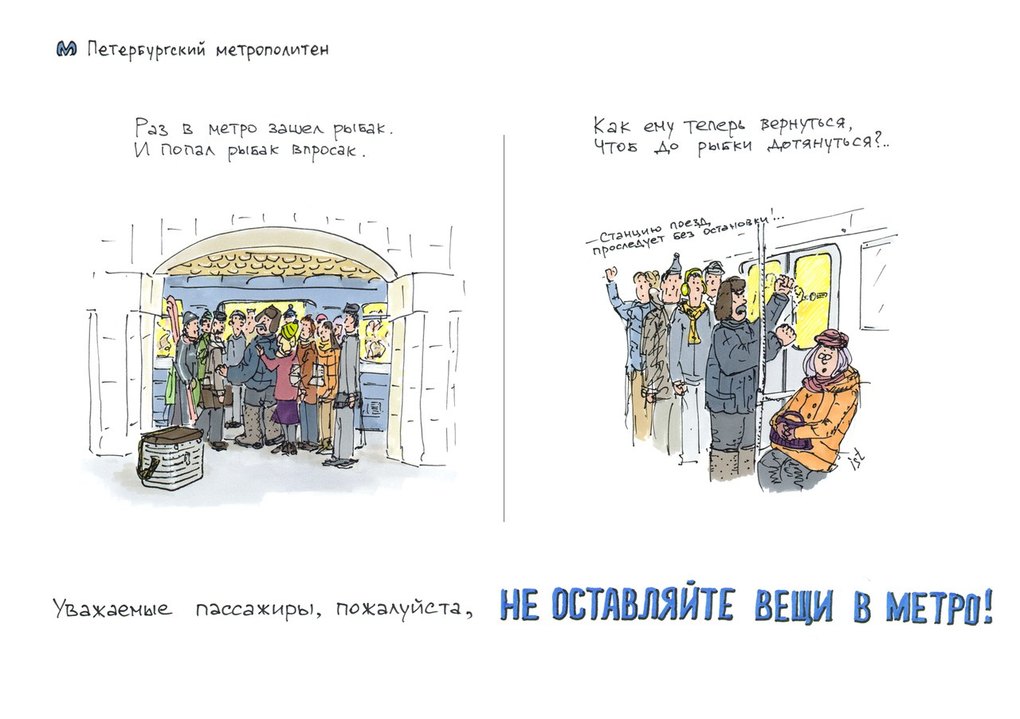 М Петербургский метрополитен
Раз в метро зашел рыбак.
И попал рыбак впросак.
Как ему теперь вернуться,
Чтоб до рыбки дотянуться?..
—Станцию поезд
проследует без остановки!...
Уважаемые пассажиры, пожалуйста, НЕ ОСТАВЛЯЙТЕ ВЕЩИ В МЕТРО!